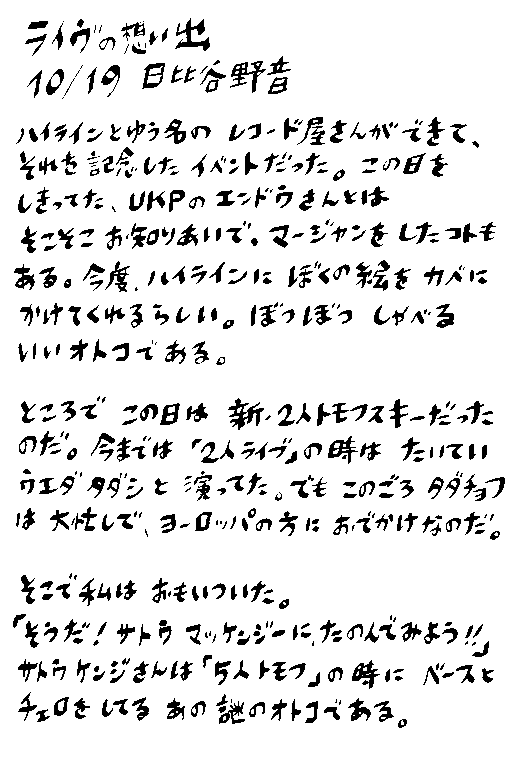 ライヴの想い出
10/19 日比谷野音
ハイラインとゆう名の レコード屋さんができて、
それを記念した イベントだった。この日を
しきってた、UKPのエンドウさんとは
そこそこ お知りあいで。マージャンをしたコトも
ある。今度、ハイラインに ぼくの絵を カベに
かけてくれるらしい。ぼつぼつ しゃべる
いいオトコである。
ところで この日は 新・2人トモフスキーだった
のだ。今までは「2人ライブ」の時は たいてい
ウエダ タダシと 演ってた。でも このごろ タダチョフ
は 大忙しで、ヨーロッパの方に おでかけなのだ。
そこで私は おもいついた。
「そうだ！サトウ マッケンジーに、たのんでみよう!!」
サトウ ケンジさんは「5人トモフ」の時に ベースと
チェロをしてる あの 謎のオトコである。